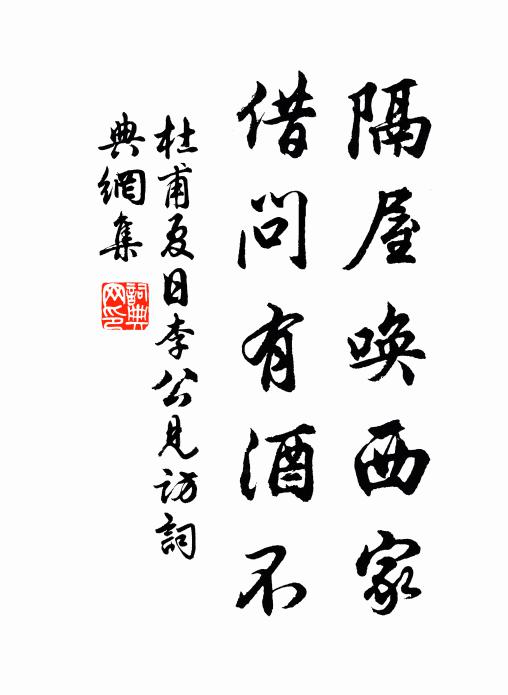 隔屋喚西家
借問有酒不
杜甫夏日李公見訪詞
典網集
詞典
网印